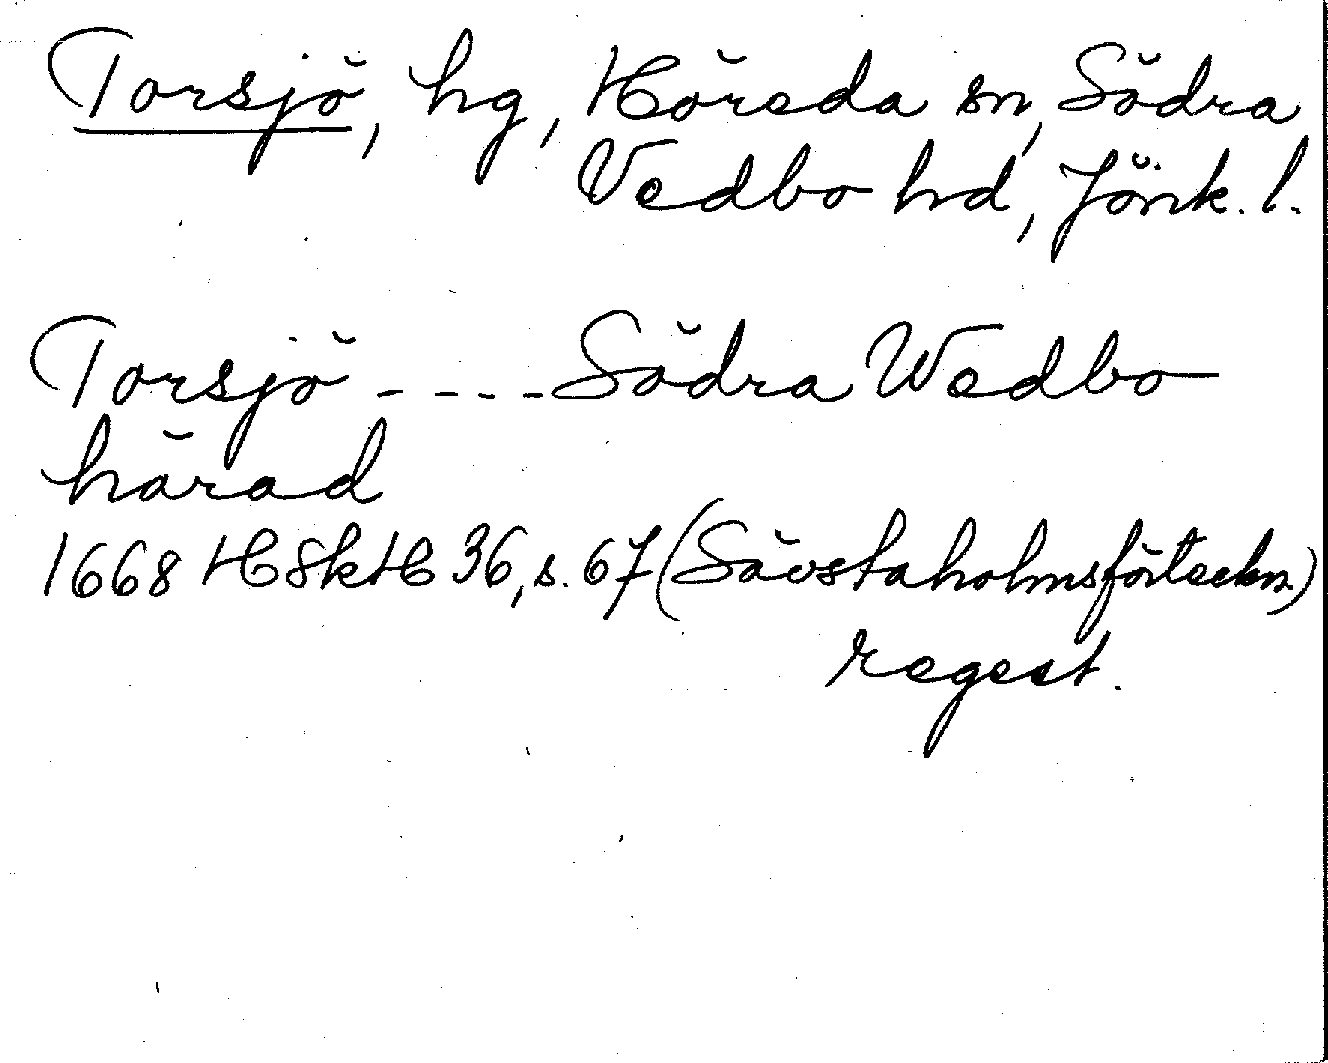 Torsjö, hg, Höreda sn, Södra
Vedbo hd, Jönk. l.
Torsjö - - - - Södra Wedbo
härad
1668 HSkH 36, s. 67 (Sävstaholmsförteckn.)
regest.